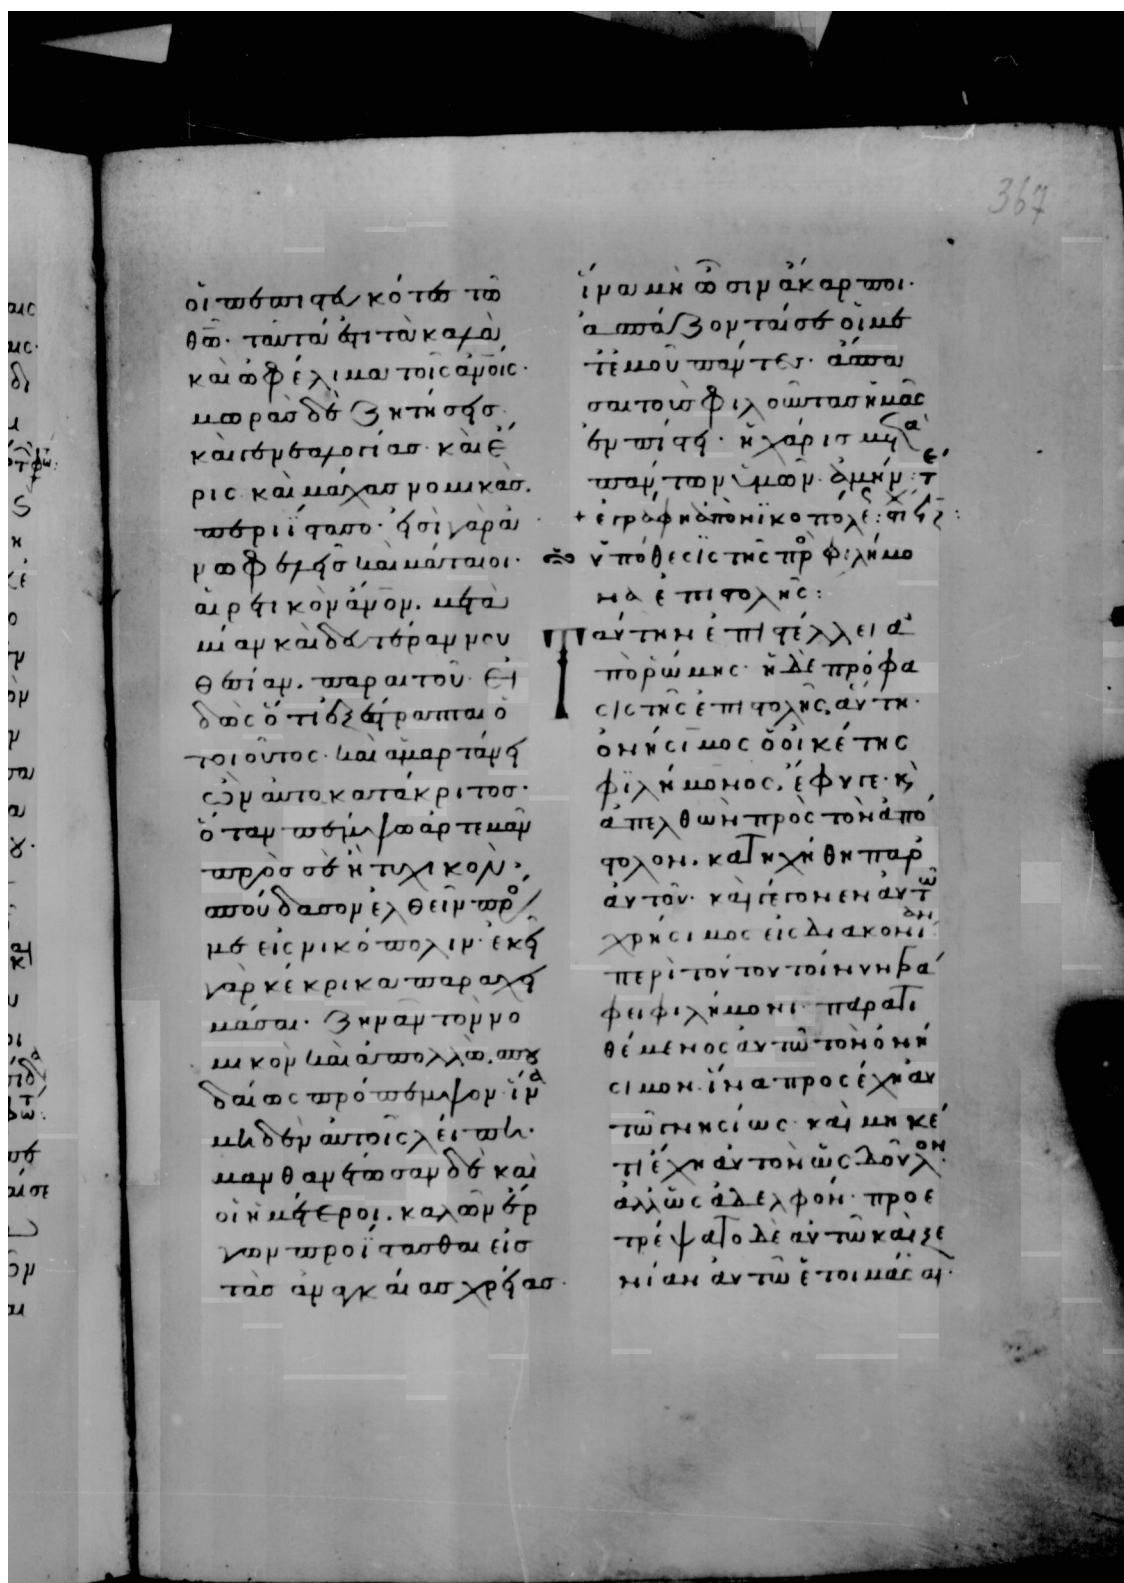 367
οἱ πεπιστευκότες τῶ
θῶ· ταῦτά ἐστι τὰ καλὰ
καὶ ὠφέλιμα τοῖς ἀνοις·
μωρὰς δὲ ζητήσεις
καὶ γενεαλογίας· καὶ ἔ
ρις καὶ μάχας νομικὰς.
περιΐστασο· εἰσὶ γὰρ ἀ
νωφελεῖς καὶ μάταιοι·
αἱρετικὸν ἀνον. μετὰ
μίαν καὶ δευτέραν νου
θεσίαν. παραιτοῦ· εἰ
δὼς ὅτι ἐξέστραπται ὁ
τοιοῦτος· καὶ ἁμαρτάνει
ὢν αὐτοκατάκριτος·
ὅταν πέμψω ἀρτεμᾶν
πρὸς σὲ ἢ τυχικὸν·
σπούδασον ἐλθεῖν πρό
με εἰς νικόπολιν· ἐκεῖ
γὰρ κέκρικα παραχει
μάσαι· ζηνᾶν τὸν νο
μικὸν καὶ ἀπολλὼ. σπου
δαίως πρόπεμψον· ἵνα
μηδὲν αὐτοῖς λείπηι·
μανθανέτωσαν δὲ καὶ
οἱ ἡμέτεροι. καλῶν ἔρ
γων προΐστασθαι εἰς
τὰς ἀναγκαίας χρείας·
ἵνα μὴ ὦσιν ἄκαρποι·
ἀσπάζονταί σε οἱ με
τ ἐμοῦ πάντες· ἄσπα
σαι τοὺς φιλοῦντας ἡμᾶς
ἐν πίστει· ἡ χάρις μετὰ
πάντων ὑμῶν· ἀμήν: τ
+ ἐγράφη ἀπὸ νϊκοπόλε:
ὑπόθεσϊς τῆς πρ φιλήμο
να ἐπιστολῆς:
Ταύτην ἐπιστέλλει ἀ
πὸ ῥώμης· ἡ δὲ πρόφα
σις τῆς ἐπιστολῆς. αὕτη·
ὀνήσιμος ὁ οἰκέτης
φϊλήμονος. ἔφυγε· κ
ἀπελθὼν πρὸς τὸν ἀπό
στολον. κατηχήθη παρ
αὐτοῦ· καὶ γέγονεν αὐτῶ
χρήσιμος εἰς διακονίαν·
περὶ τούτου τοίνυν γρά
φει φιλήμονι· παρατι
θέμενος αὐτῶ τὸν ὀνή
σιμον· ἵνα προσέχη αὐ
τῶ γνησίως· καὶ μηκέ
τι ἔχη αὐτὸν ὡς δοῦλον·
ἀλλ ὡς ἀδελφόν· προε
τρέψατο δὲ αὐτῶ καὶ ξε
νίαν αὐτῶ ἑτοιμάσαι·